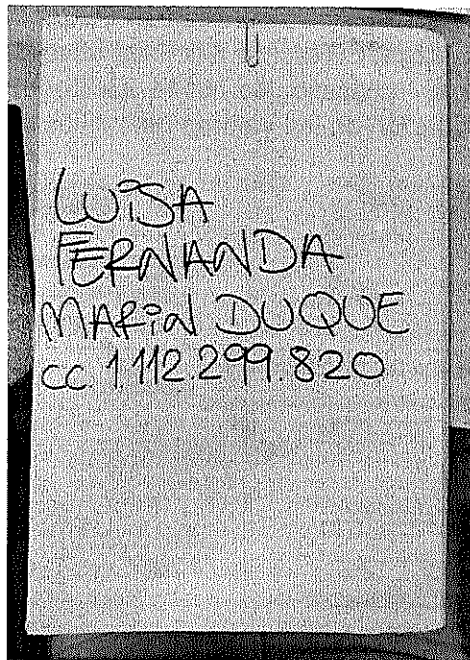 LUiSA
FERNANDA
MARiN DUQUE
CC. 1.112.299.820